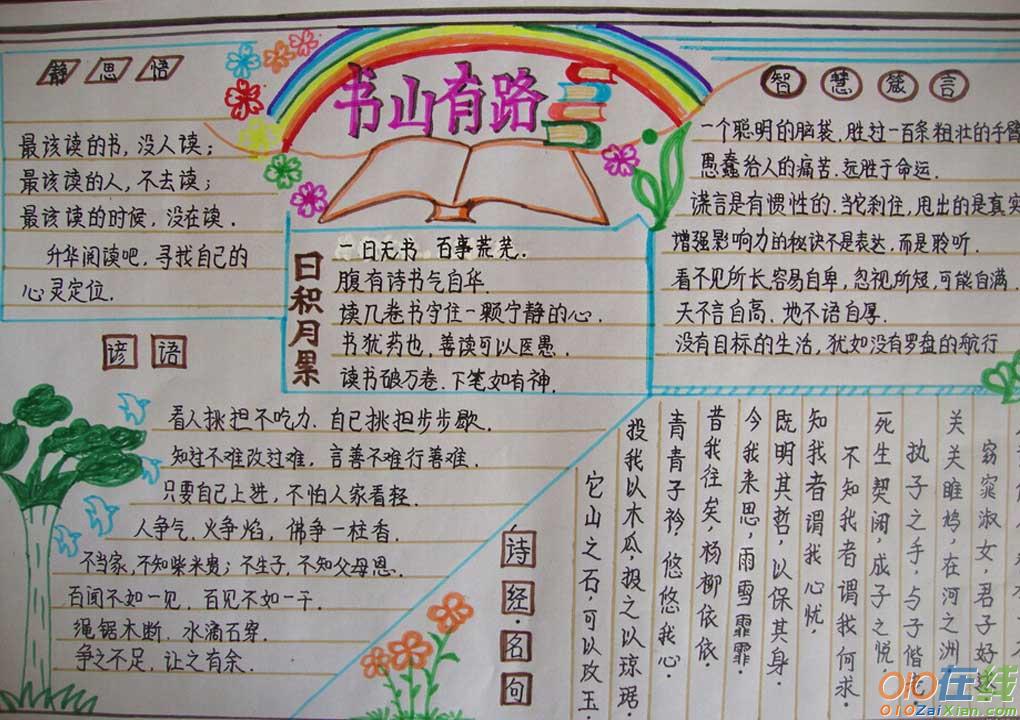 静思悟
最该读的书,没人读;
最该读的人,不去读;
最该读的时候,没在读.
升华阅读吧,寻找自己的
心灵定位.
书山有路
智慧箴言
一个聪明的脑袋,胜过一百条粗壮的手臂
愚蠢给人的痛苦.远胜于命运.
谎言是有惯性的.当它刹住,甩出的是真实
增强影响力的秘诀不是表达,而是聆听.
看不见所长,容易自卑,忽视所短,可能自满.
天不言自高、地不语自厚.
没有目标的生活,犹如没有罗盘的航行
日积月累
一日无书 百事荒芜.
腹有诗书气自华.
读几卷书守住一颗宁静的心.
书犹药也,善读可以医愚.
读书破万卷.下笔如有神.
谚语
看人挑担不吃力.自己挑担步步歇.
知过不难改过难,言善不难行善难.
只要自己上进,不怕人家看轻.
人争气,火争焰,佛争一柱香.
不当家,不知柴米贵;不生子,不知父母恩.
百闻不如一见,百见不如一干.
绳锯木断.水滴石穿.
争之不足,让之有余.
诗经·名句
窈窕淑女,君子好逑
关关雎鸠,在河之洲
执子之手,与子偕老
死生契阔,成子之悦,
不知我者谓我何求
知我者谓我心忧,
既明其哲,以保其身.
今我来思,雨雪霏霏.
昔我往矣,杨柳依依.
青青子衿,悠悠我心.
投我以木瓜.投之以琼琚.
它山之石,可以攻玉.
010在线
010ZaiXian.com